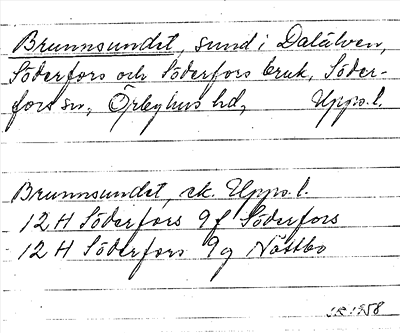 Brunnsundet, sund i Dalälven,
Söderfors och Söderfors bruk, Söder-
fors sn, Örbyhus hd, Upps. l.
Brunnsundet, ek. Upps. l.
12 H Söderfors 9f Söderfors
12 H Söderfors 9g Nöttbo
1958